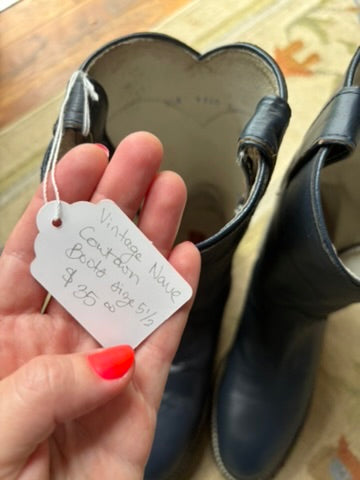 Vintage Nave
Contown
Boots size 5 1/2
$35.00